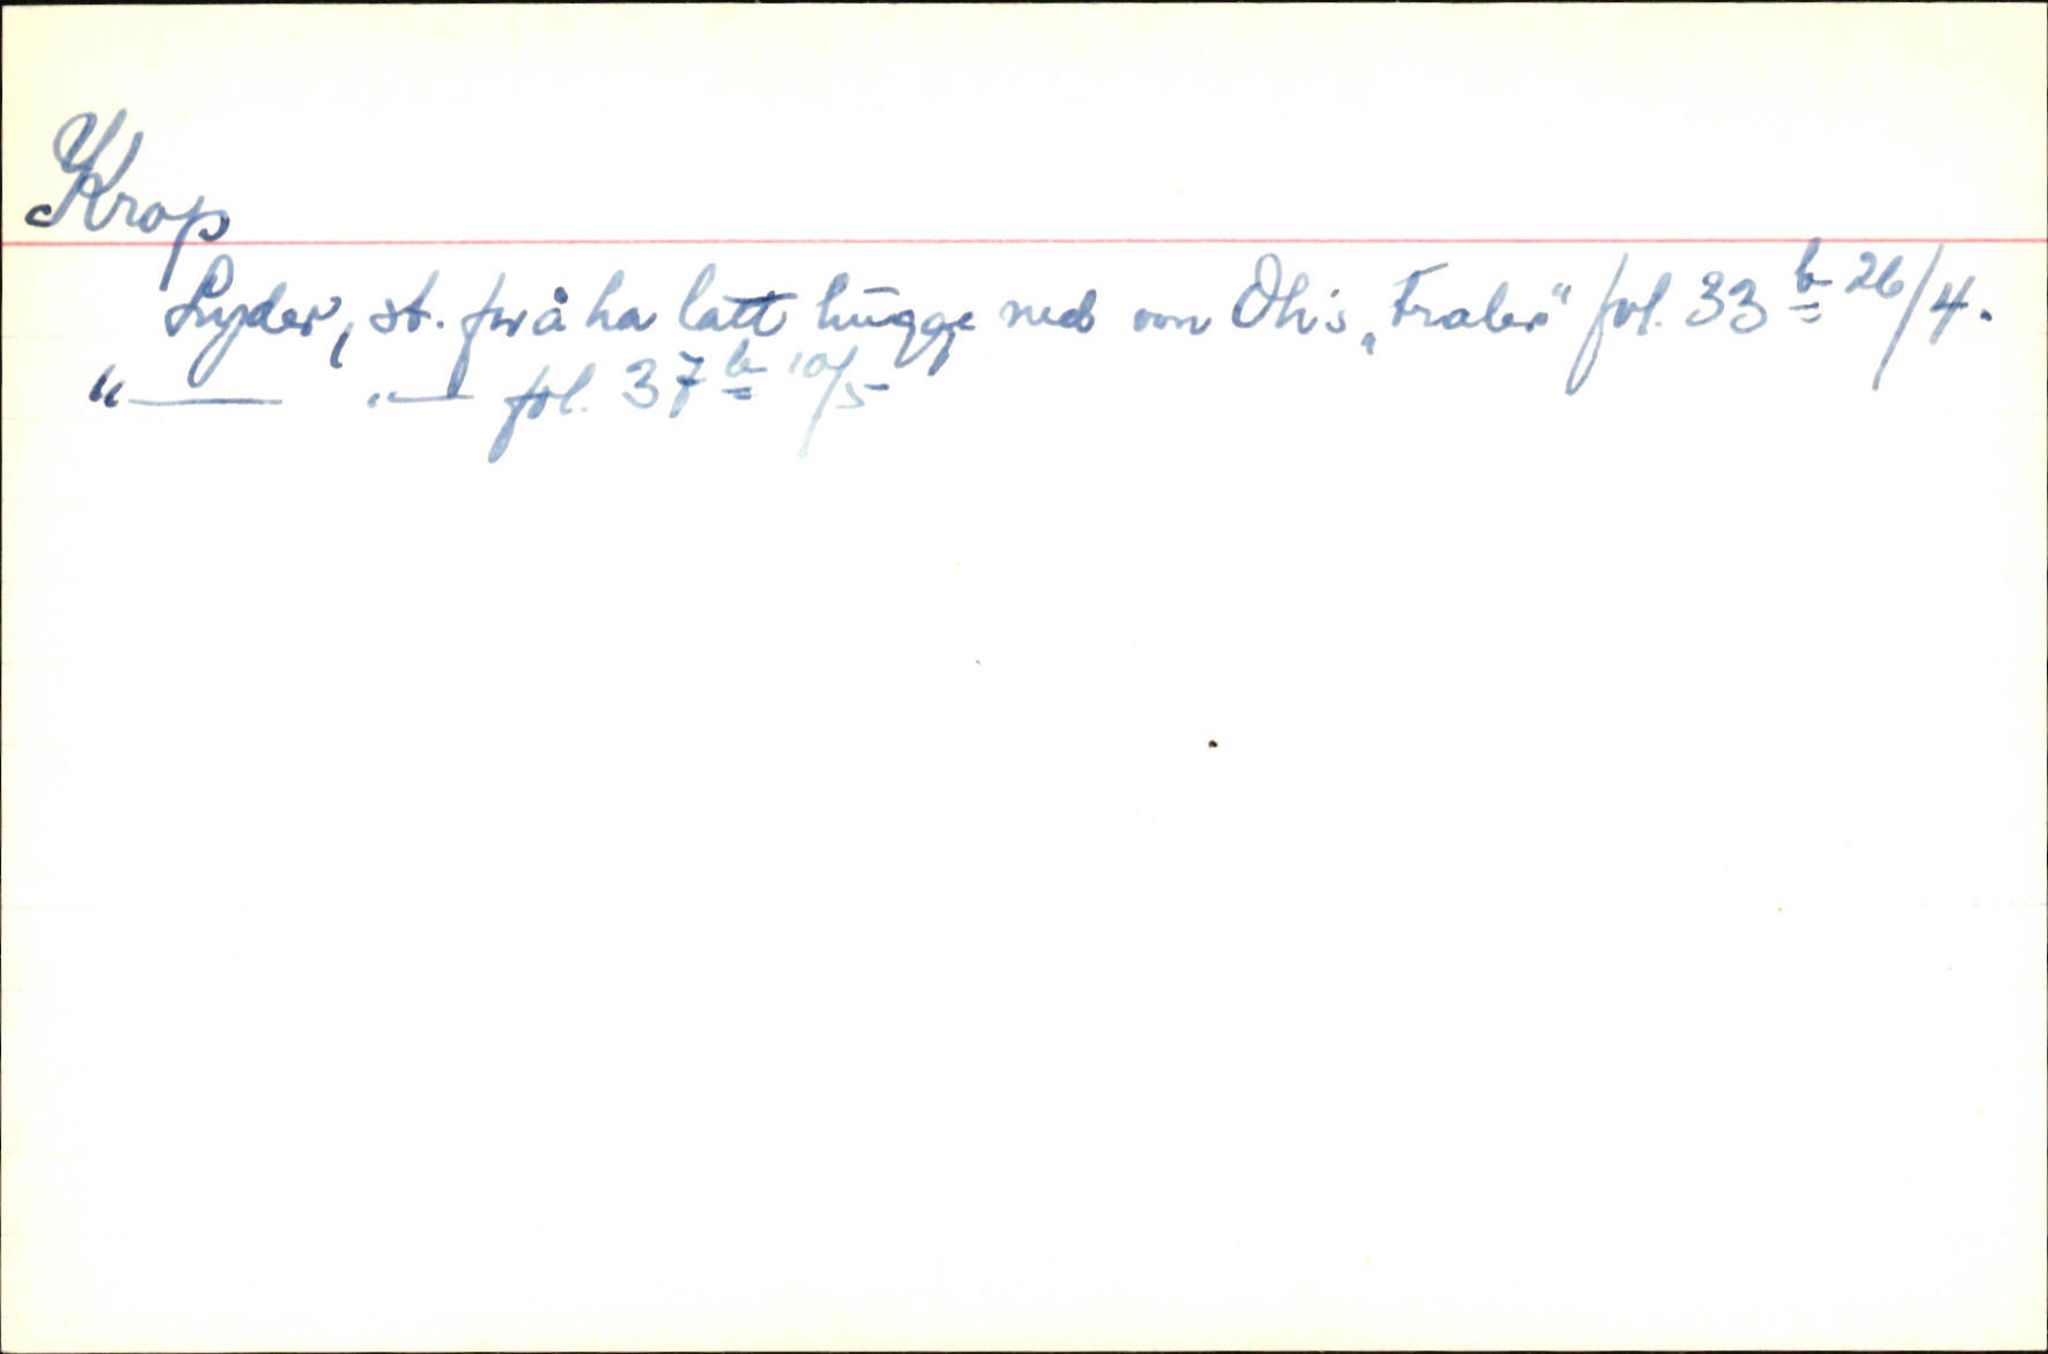 Krop
Lyder, st. for å ha latt hugge ned von Oh's „Traler" fol. 33 b 26/4.
"— "— fol. 37 b 10/5